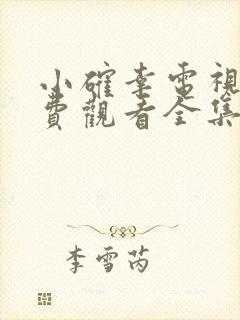 小確幸電視
費觀看全集
李雪芮